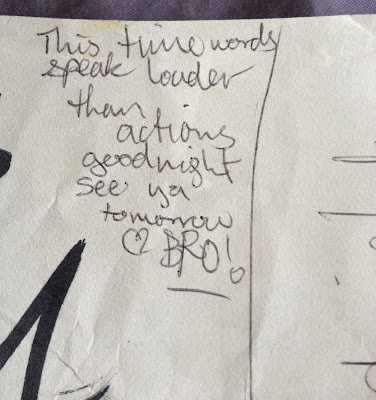 This time words
speak louder
than
actions
goodnight
see ya
tomorrow
♡ BRO!